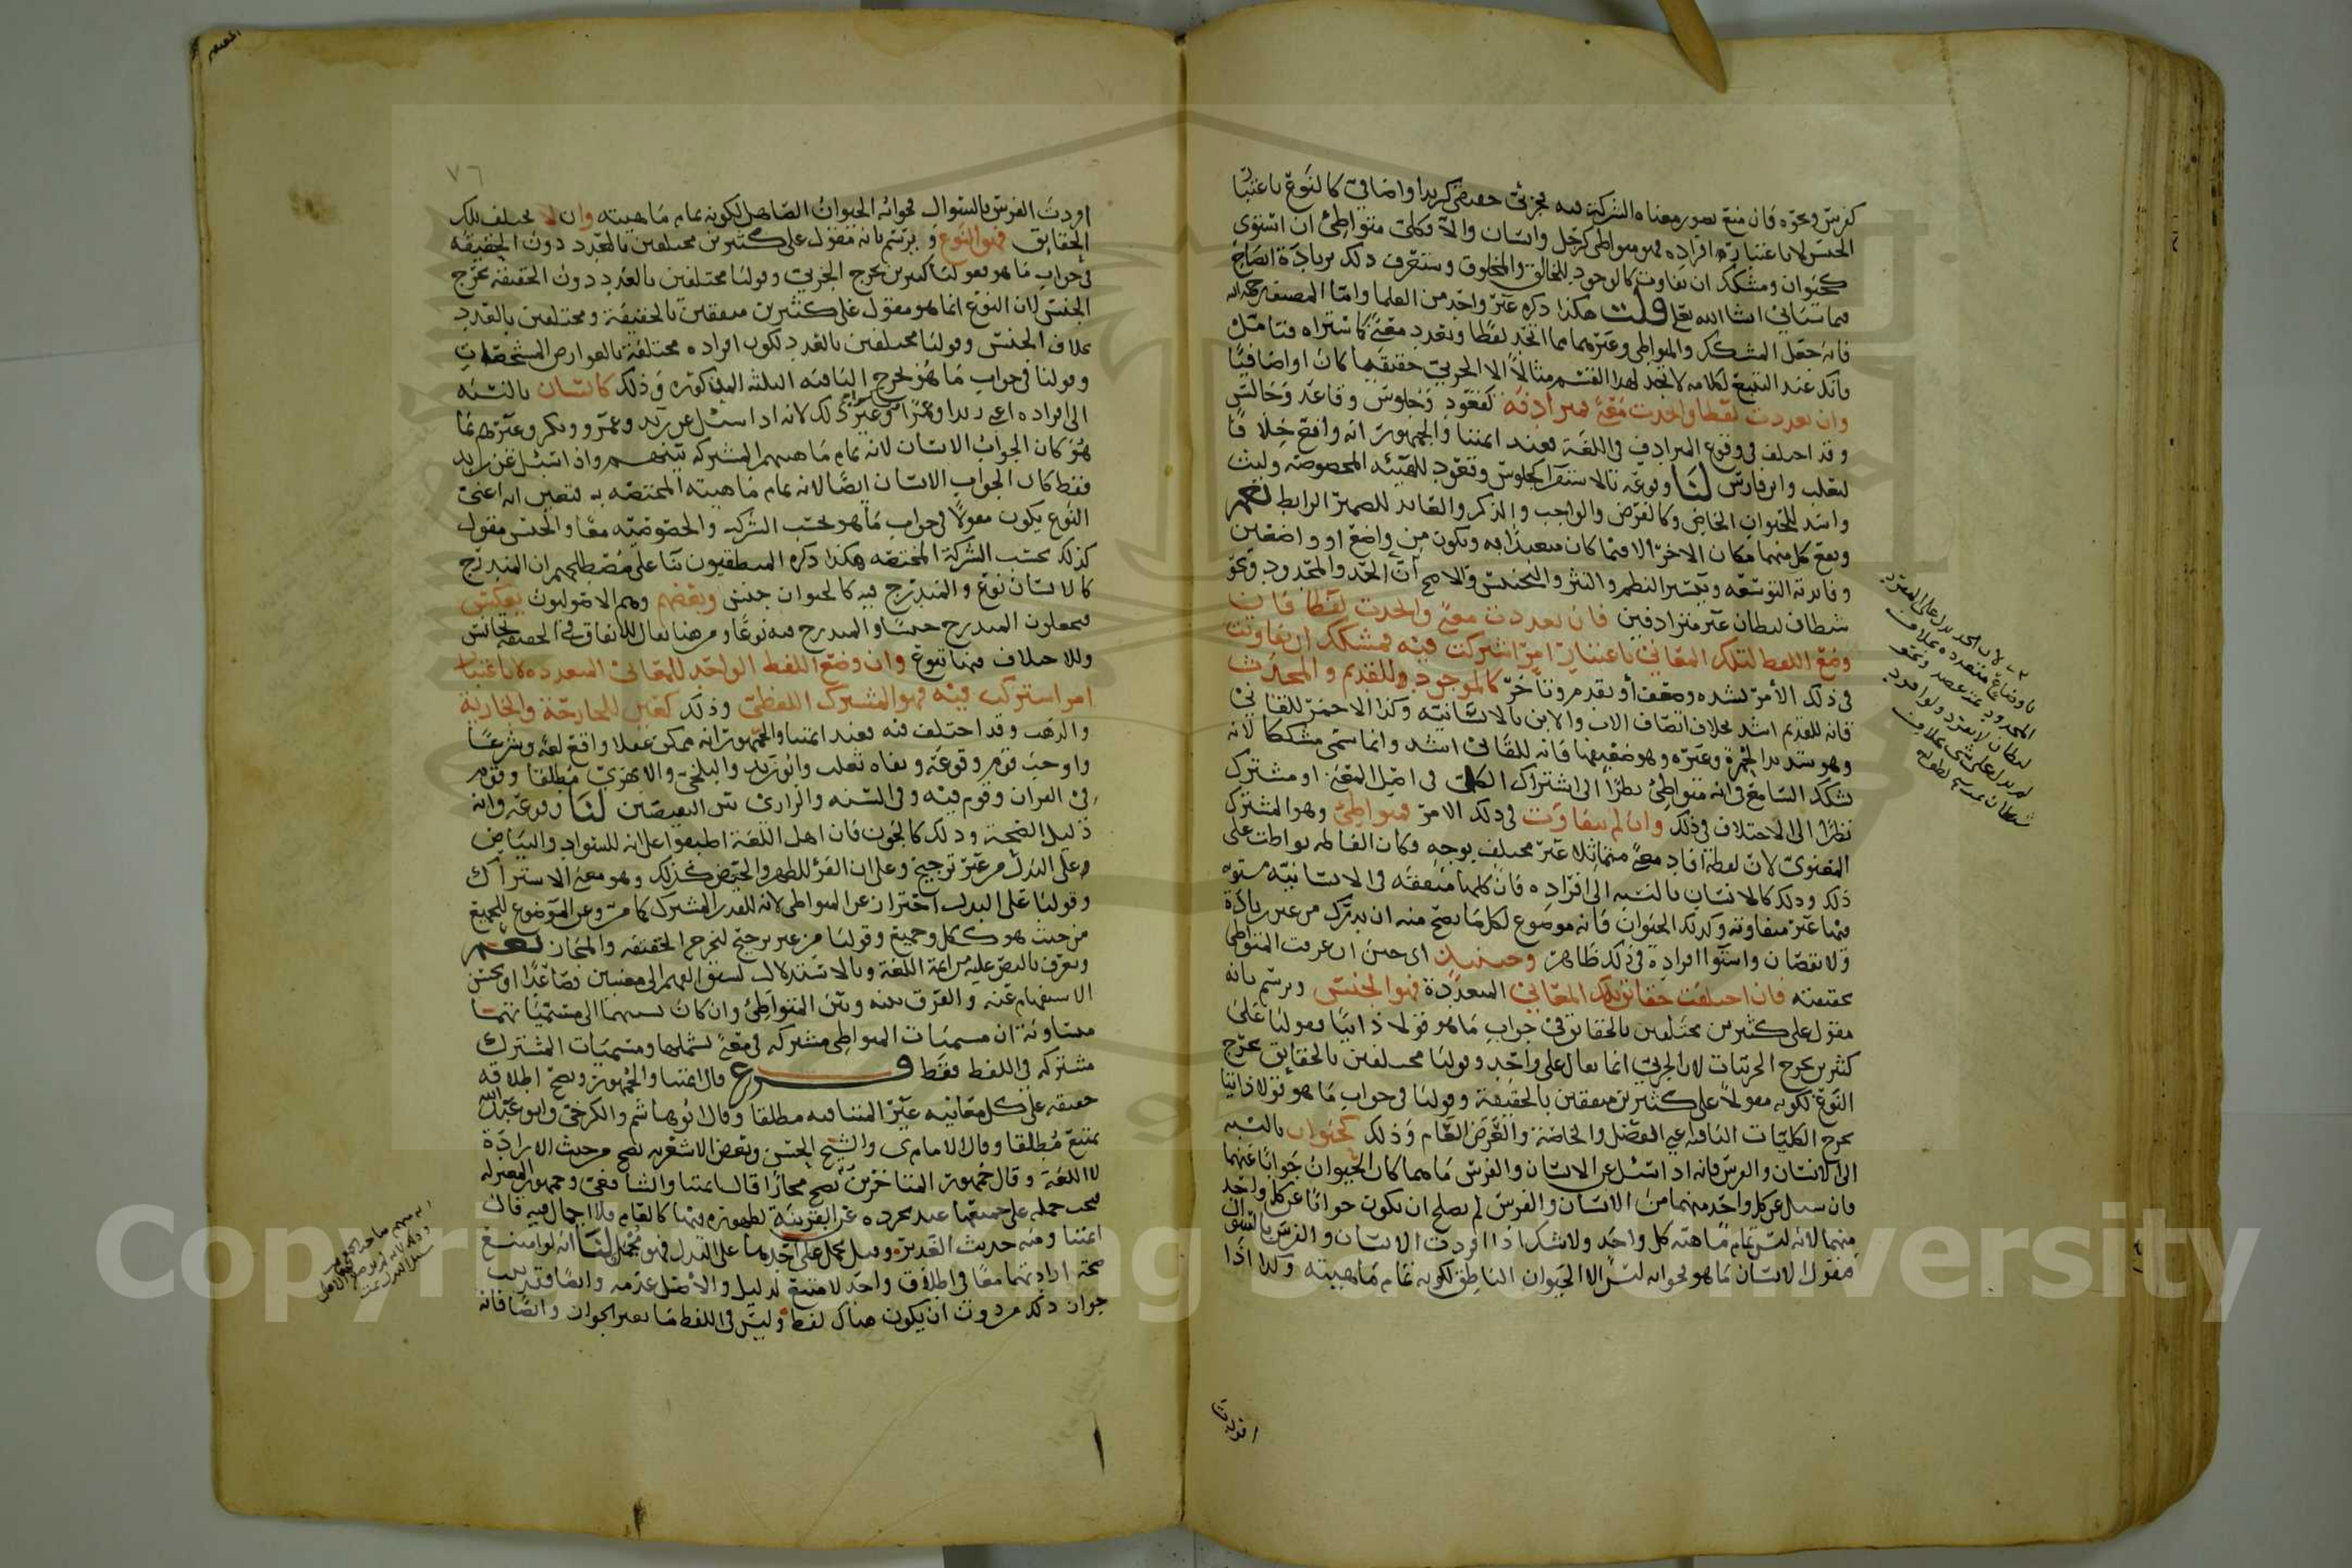 كفرس ونحوه فان منع تصور معناه الشركة فيه فجزئي حقيقي كزيد او اضافي كالنوع باعتبار
الجنس لا باعتبار افراده فهو متواطئ كرجل وانسان والا فكلي متواطئ ان استوى
كحيوان ومشكك ان تفاوت كالوجود للخالق والمخلوق وستعرف ذلك بزيادة ايضاح
فيما سيأتي انشا الله تعالى قلت هكذا ذكره غير واحد من العلما واما المصنف رحمه الله
فانه جعل المشكك والمتواطي وغيرهما مما اتحد لفظا وتعدد معنىً كما ستراه فتأمل
وانك عند التتبع لكلامه لا تجد لهذا القسم مثالاً الا الجزئي حقيقيها كان او اضافيًا
وان تعددت لفظا واتحدت معنىً فمترادفة كقعود وجلوس وقاعد وجالس
وقد اختلف في وقوع المترادف في اللغة فعند ائمتنا والجمهور انه واقع خلافا
لثعلب وابن فارس لنا وقوعه بالاستقرا كجلوس وقعود للهيئه المخصوصه وليث
واسد للحيوان الخاص وكالفرض والواجب والذكر والعائد للضمير الرابط نعم
ويقع كل منهما مكان الاخر الا فيما كان متعبدًا به ويكون من واضع او واضعين
وفائدته التوسعه وتيسير النظم والنثر والتجنيس والاصح ان الحد والمحدود ونحو
شطان لبطان غير مترادفين فان تعددت معنىً واتحدت لفظا فان
وضع اللفظ لتلك المعاني باعتبار امر اشتركت فيه فمشكك ان تفاوتت
في ذلك الأمر بشده وضعف أو تقدم وتأخر كالموجود للقديم والمحدث
فانه للقديم اشد بخلاف اتصاف الاب والابن بالانسانيه وكذا الاحمر للقاني
وهو شديد الحمرة وغيره وهو ضعيفها فانه للقاني اشد وانما سمي مشككا لانه
شكك السامع في انه متواطئ نظرًا الى اشتراك الكل في اصل المعنى او مشترك
نظرًا الى الاختلاف في ذلك وان لم يتفاوت في ذلك الامر فمتواطئ وهو المشترك
المعنوي لان لفظة افاد معنىً متماثلا غير مختلف بوجه وكان الفاظه تواطت على
ذلك وذلك كالانسان بالنسبه الى افراده فان كلها متفقه في الانسانيه مستويه
فيها غير متفاوته وكذلك الحيوان فانه موضوع لكل ما يصح منه ان يدرك من غير زيادة
ولا نقصان واستوا افراده في ذلك ظاهر وحينئذ اي حين ان عرفت المتواطي
بحقيقته فان اختلفت حقائق تلك المعاني المتعددة فهو الجنس ويرسم بانه
مقول على كثيرين مختلفين بالحقائق في جواب ما هو قولا ذاتيًا فقولنا على
كثيرين يخرج الجزئيات لان الجزئي انما يقال على واحد وقولنا مختلفين بالحقائق يخرج
النوع لكونه مقولاً على كثيرين متفقين بالحقيقة وقولنا في جواب ما هو قولا ذاتيا
يخرج الكليات الباقيه اعني الفصل والخاصة والعرض العام وذلك كحيوان بالنسبه
الى الانسان والفرس فانه اذا سئل عن الانسان والفرس ما هما كان الحيوان جوابًا عنهما
فان سئل عن كل واحد منهما من الانسان والفرس لم يصلح ان يكون جوابًا عن كل واحد
منهما لانه ليس تمام ماهيته كل واحد ولا شك اذا افردت الانسان والفرس بالسؤال
فقول الانسان ما هو فجوابه ليس الا الحيوان الناطق لكونه تمام ماهيته وكذا اذا
افردت
لان الحد يدل على المفردات
باوضاع متعدده بخلاف
المحدود
لبطان لا يفرد ولو افرد
لم يدل على شي بخلاف
شطان
٧٦
افردت الفرس بالسؤال فجوابه الحيوان الصاهل لكونه تمام ماهيته وان لا تختلف تلك
الحقايق فهو النوع و يرسم بانه مقول على كثيرين مختلفين بالعدد دون الحقيقه
في جواب ما هو فقولنا كثيرين يخرج الجزئي وقولنا مختلفين بالعدد دون الحقيقة يخرج
الجنس لان النوع انما هو مقول على كثيرين متفقين بالحقيقة ومختلفين بالعدد
بخلاف الجنس وقولنا مختلفين بالعدد لكون افراده مختلفة بالعوارض المشخصات
وقولنا في جواب ما هو يخرج الباقيه الثلثه المذكوره وذلك كانسان بالنسبه
الى افراده اعني زيدا وعمرًا وغير ذلك لانه اذا سئل عن زيد وعمرو وبكر وغيرهم بما
هو كان الجواب الانسان لانه تمام ماهيتهم المشتركه بينهم واذا سئل عن زيد
فقط كان الجواب الانسان ايضًا لانه تمام ماهيته المختصه به فتعين انه اعني
النوع يكون مقولاً في جواب ما هو بحسب الشركه والخصوصيه معًا والجنس مقول
كذلك بحسب الشركة المختصه هكذا ذكره المنطقيون بنا على مصطلحهم ان المندرج
كالانسان نوع والمندرج فيه كالحيوان جنس وبعضهم وهم الاصوليون يعكس
فيجعلون المندرج جنسًا والمندرج فيه نوعًا ومن هنا يقال للاتفاق في الحقيقه تجانس
وللاختلاف فيها تنوع وان وضع اللفظ الواحد للمعاني المتعدده لا باعتبار
امر اشتركت فيه فهو المشترك اللفظي وذلك كعين للجارحة والجارية
والذهب وقد اختلف فيه فعند ائمتنا والجمهور انه ممكن عقلا واقع لغه وشرعًا
واوجب قوم وقوعه ونفاه ثعلب وابو زيد والبلخي والابهري مطلقا وقوم
في القران وقوم فيه وفي السنه والرازي بين النقيضين لنا وقوعه وانه
دليل الصحة وذلك كالجون فان اهل اللغة اطبقوا على انه للسواد والبياض
وعلى البدل من غير ترجيح وعلى ان القرء للطهر والحيض كذلك وهو معنى الاشتراك
وقولنا على البدل احتراز عن المتواطي لانه للقدر المشترك كما مر وعن الموضوع للجميع
من حيث هو ككل وجميع وقولنا من غير ترجيح ليخرج الحقيقه والمجاز نعم
ويعرف بالنص عليه من ائمة اللغة وبالاستدلال لسبق الفهم الى معنيين فصاعدًا او بحسن
الاستفهام عنه والفرق بينه وبين المتواطئ وان كان نسبتهما الى مسمياتهما
متساوية ان مسميات المتواطي مشتركه في معنىً يشملها ومسميات المشترك
مشتركه في اللفظ فقط فرع قال ائمتنا والجمهور ويصح اطلاقه
حقيقه على كل معانيه غير المتنافيه مطلقا وقال ابو هاشم والكرخي وابو عبد الله
يمتنع مطلقا وقال الامام ي والشيخ الحسن وبعض الاشعريه يصح من حيث الارادة
لا اللغة وقال جمهور المتاخرين يصح مجازًا قال ائمتنا والشافعي وجمهور المعتزله
فيجب حمله على جميعها عند تجرده عن القرينة لظهوره فيها كالعام فلا اجمال فيه قال
ائمتنا ومنه حديث الغدير وقيل يحمل على احدهما على البدل فهو مجمل لنا انه لو امتنع
صحة ارادتهما معًا في اطلاق واحد لامتنع لدليل والأصل عدمه وايضًا فتريب
جواز ذلك من دون ان يكون هناك لفظ وليس في اللفظ ما يغير الجواز وايضًا فانه